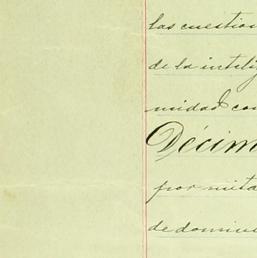 las cuestion
de la intelig
midad con
Décim
por mita
de domin